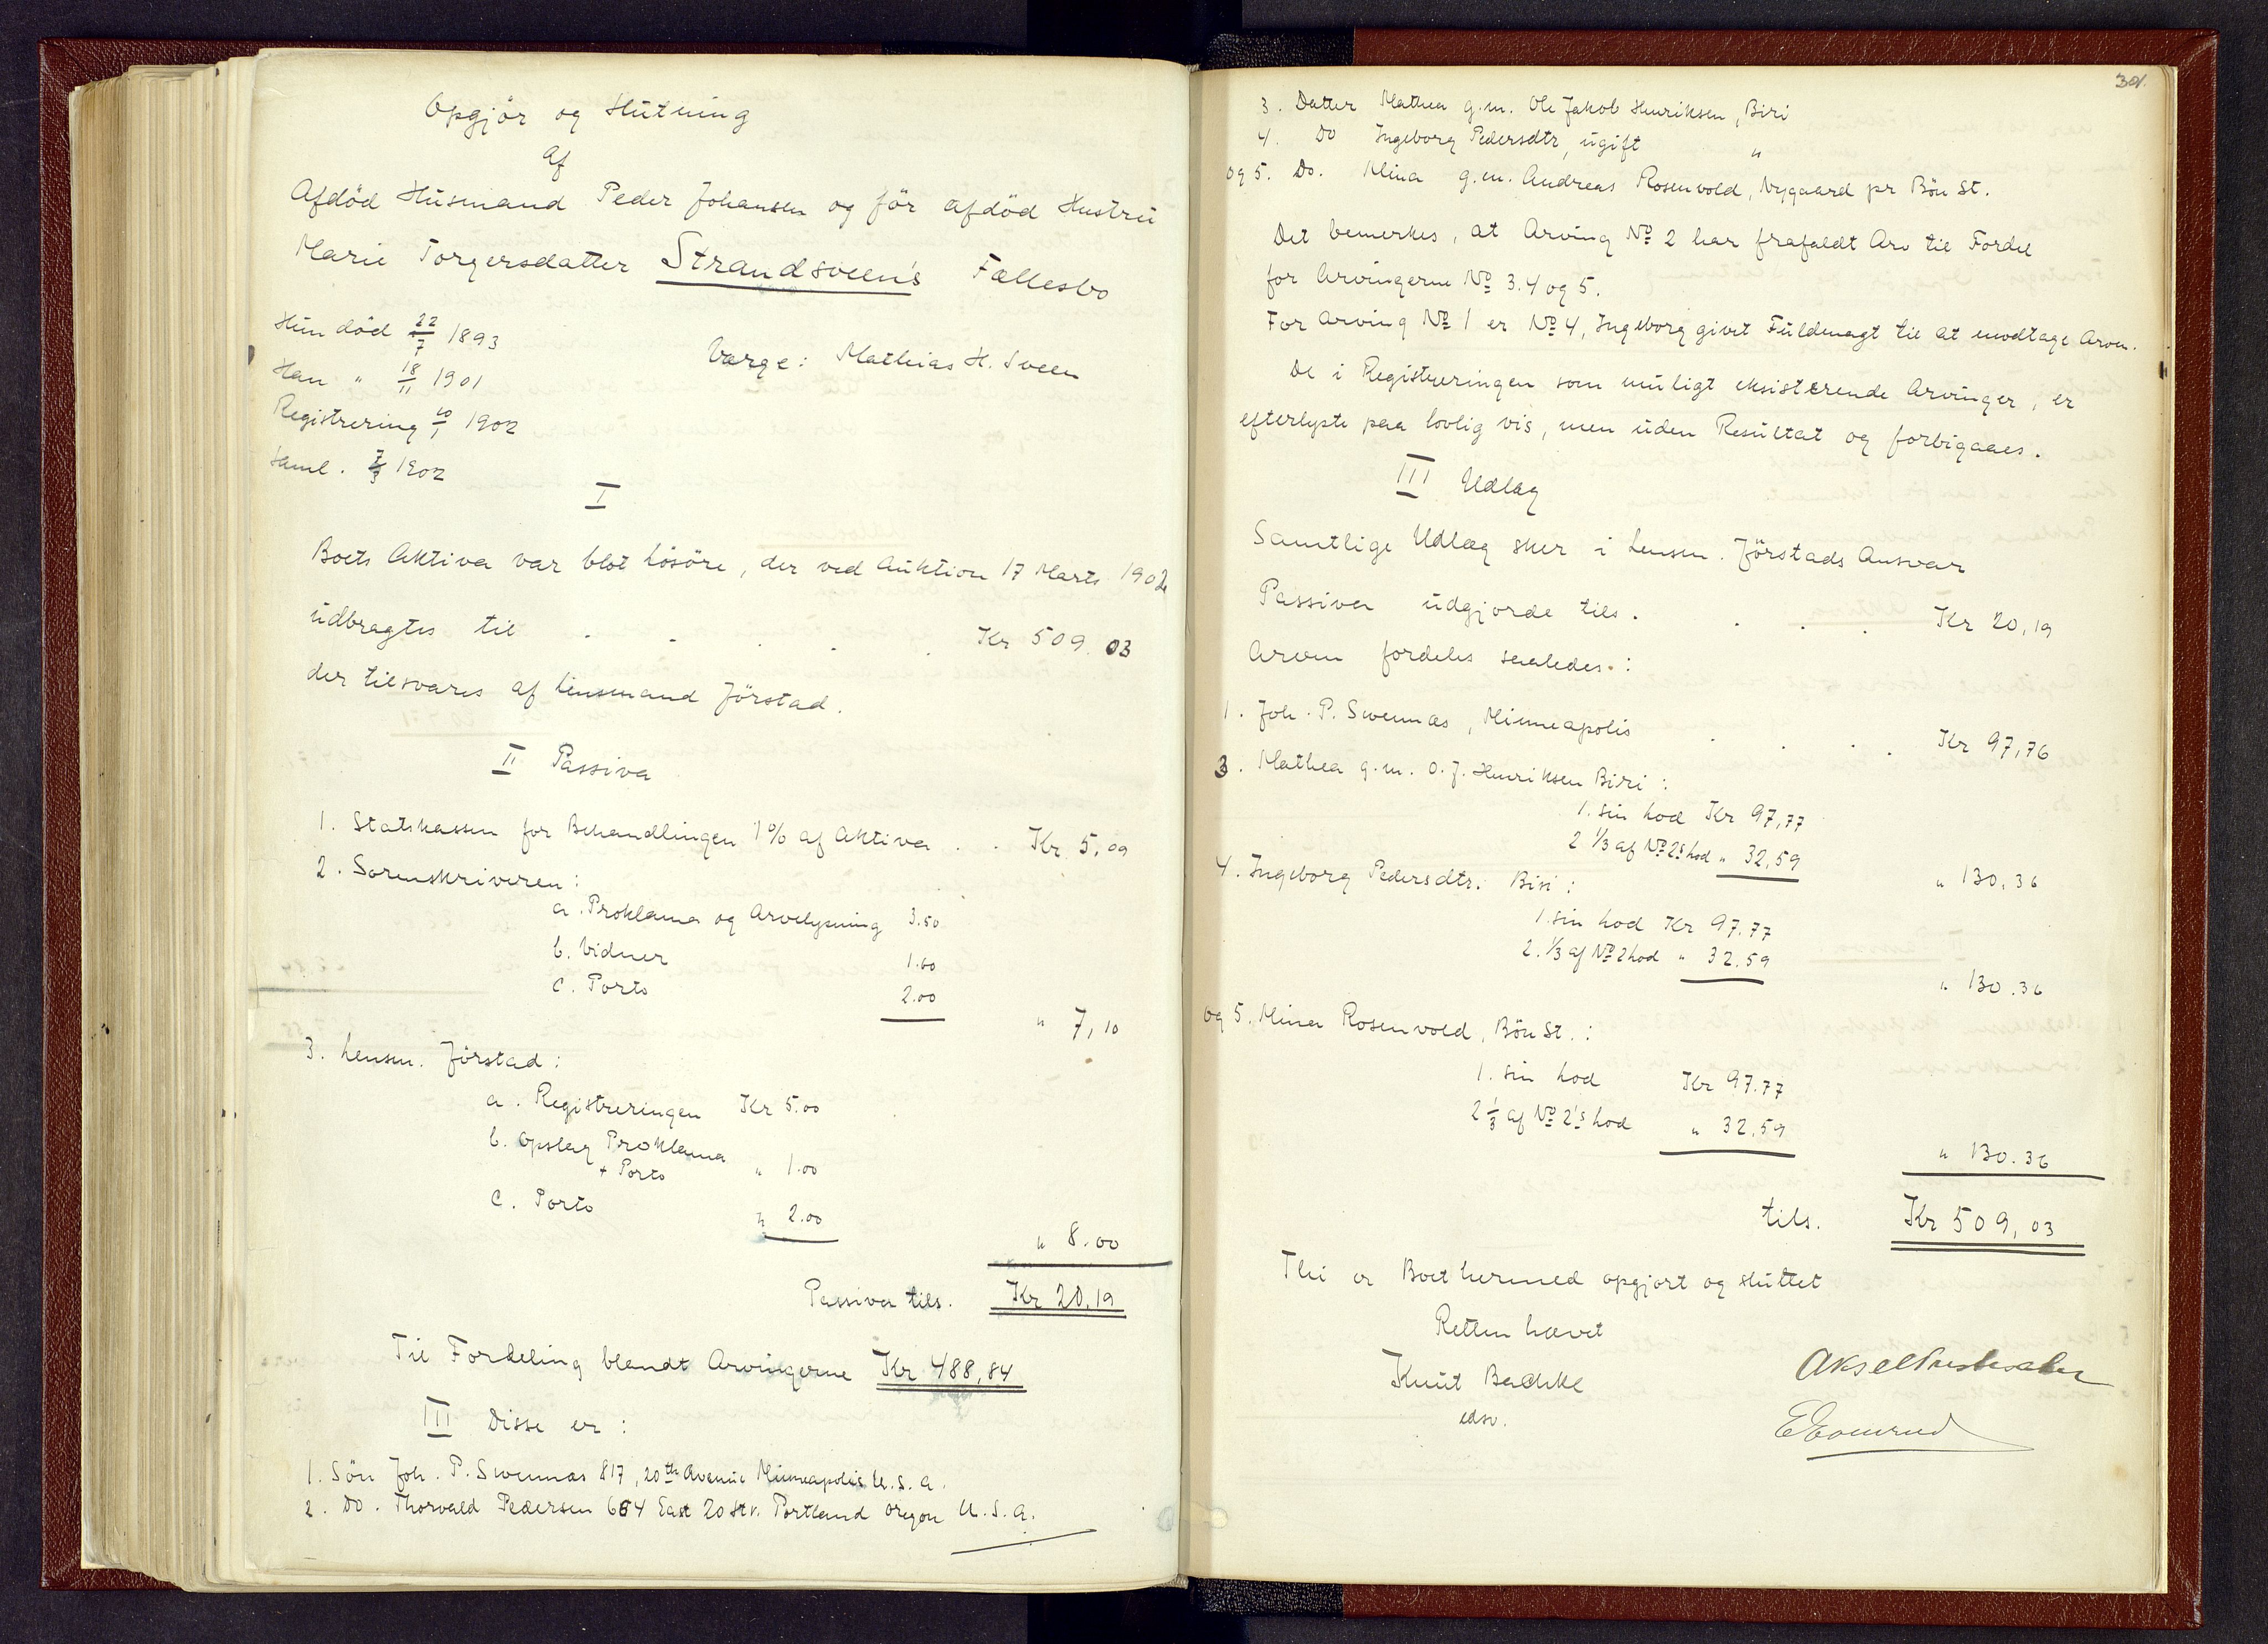 Opgjör og Slutning
af
Afdöd Husmand Peder Johansen og för afdöd Hustru
Marie Torgersdatter Strandsveen's Fællesbo
Hun död 22/7 1893
Han " 18/11 1901
Værge: Mathias H. Sveen
Registrering 10/1 1902
Saml. 7/3 1902
I
Boets Aktiva var blot Lösöre, der ved Auktion 17 Marts 1902
udbragtes til . . . . . Kr 509.03
der tilsvares af Lensmand Jörstad.
II Passiva
1. Statskassen for Behandlingen 1% af Aktiva . . Kr 5,09
2. Sorenskriveren:
a. Proklama og Arvelysning 3.50
b. Vidner 1.60
c. Porto 2.00
" 7,10
3. Lensm. Jörstad:
a. Registreringen Kr 5.00
b. Opslag Proklama
+ Porto " 1.00
c. Porto " 2.00
" 8.00
Passiva tils. Kr 20.19
Til Fordeling blandt Arvingerne Kr 488,84
III Disse er:
1. Sön Joh. P. Swennas 817, 20th Avenue Minneapolis U.S.A.
2. Do. Thorvald Pedersen 664 East 20 Str. Portland Oregon U.S.A.
301.
3. Datter Mathea g.m. Ole Jakob Henriksen, Biri
4. Do Ingeborg Pedersdtr, ugift "
og 5. Do. Mina g.m. Andreas Rosenvold, Nygaard pr Bön St.
Det bemerkes, at Arving No 2 har frafaldt Arv til Fordel
for Arvingerne No 3. 4 og 5.
For Arving No 1 er No 4, Ingeborg givet Fuldmagt til at modtage Arven.
De i Registreringen som muligt eksisterende Arvinger, er
efterlyste paa lovlig vis, men uden Resultat og forbigaaes.
III Udlæg
Samtlige Udlæg sker i Lensm. Jörstads Ansvar
Passiva udgjorde tils. . . . Kr 20,19
Arven fordeles saaledes.:
1. Joh. P. Swennas, Minneapolis . . . . Kr 97,76
3. Mathea g.m. O. J. Henriksen Biri:
1. sin Lod Kr 97,77
2 1/3 af No 2s Lod " 32,59
" 130,36
4. Ingeborg Pedersdtr. Biri:
1. sin Lod Kr 97.77
2. 1/3 af No 2 Lod " 32.59
" 130.36
og 5. Mina Rosenvold, Bön St.:
1. sin Lod Kr 97.77
2 1/3 af No 2's Lod " 32,59
" 130.36
tils. Kr 509,03
Thi er Boet hermed opgjort og sluttet
Retten hævet
Knut Bachke
edsv.